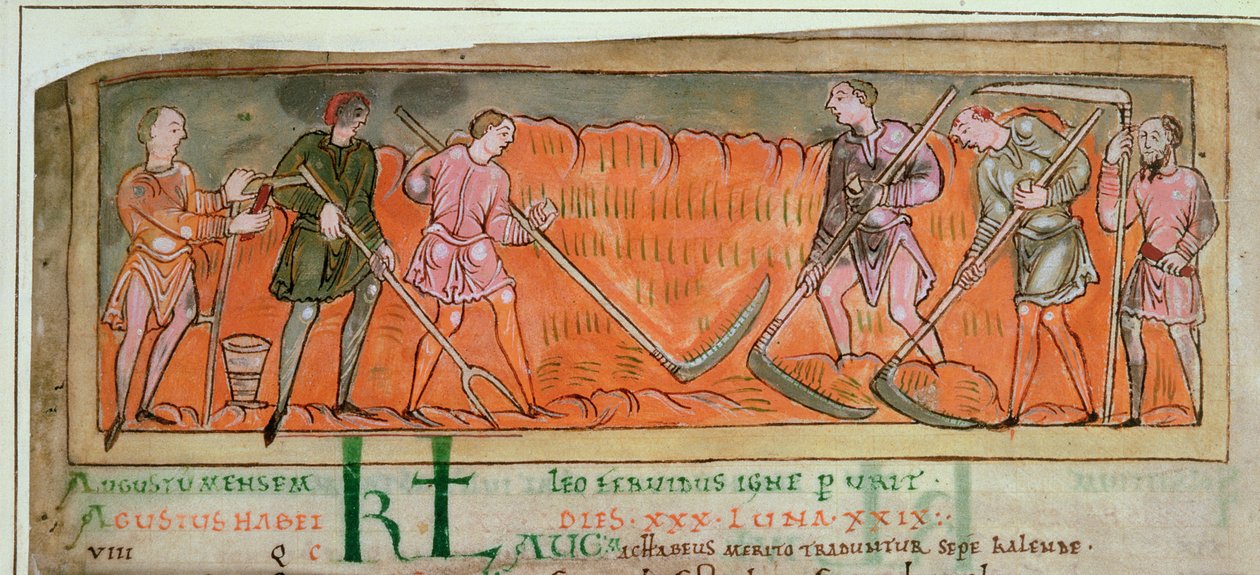 AUGUSTŪ MENSEM LEO FERVIDUS IGNE PURIT.
AGUSTUS HABET DIES · XXX · LUNA · XXIX :·
VIII Q C KL AUG ACHABEUS MERITO TRADUNTUR SEPE KALENDE .